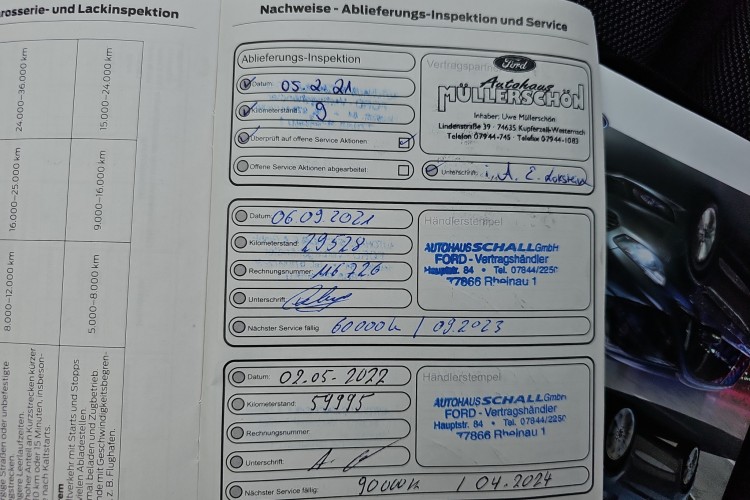 rosserie- und Lackinspektion
24.000–36.000 km
15.000–24.000 km
16.000–25.000 km
9.000–16.000 km
8.000–12.000 km
5.000–8.000 km
Straßen oder unbefestigte
hoher Anteil an Kurzstrecken kürzer
10 km oder 15 Minuten, insbeson-
nach Kaltstarts.
verkehr mit Starts und Stopps
vielen Abladestellen.
mal beladen und Zugbetrieb.
mit Geschwindigkeitsbegren-
z. B. Flughafen.
Nachweise - Ablieferungs-Inspektion und Service
Ablieferungs-Inspektion
Datum: 05.2.21
Kilometerstand: 9
Überprüft auf offene Service Aktionen
Offene Service Aktionen abgearbeitet
Ford
Autohaus
MÜLLERSCHÖN
Inhaber: Uwe Müllerschön
Lindenstraße 39 · 74635 Kupferzell-Westernach
Telefon 07944-745 · Telefax 07944-1083
Unterschrift: i.A. E.
Datum: 06.09.2021
Kilometerstand: 29528
Rechnungsnummer: 116726
Unterschrift:
Nächster Service fällig: 60000k / 09.2023
Händlerstempel
AUTOHAUS SCHALL GmbH
FORD - Vertragshändler
Hauptstr. 84 • Tel. 07844/2250
77866 Rheinau 1
Datum: 02.05-2022
Kilometerstand: 59995
Rechnungsnummer:
Unterschrift:
Nächster Service fällig: 90000k / 04.2024
Händlerstempel
AUTOHAUS SCHALL GmbH
FORD - Vertragshändler
Hauptstr. 84 • Tel. 07844/2250
77866 Rheinau 1